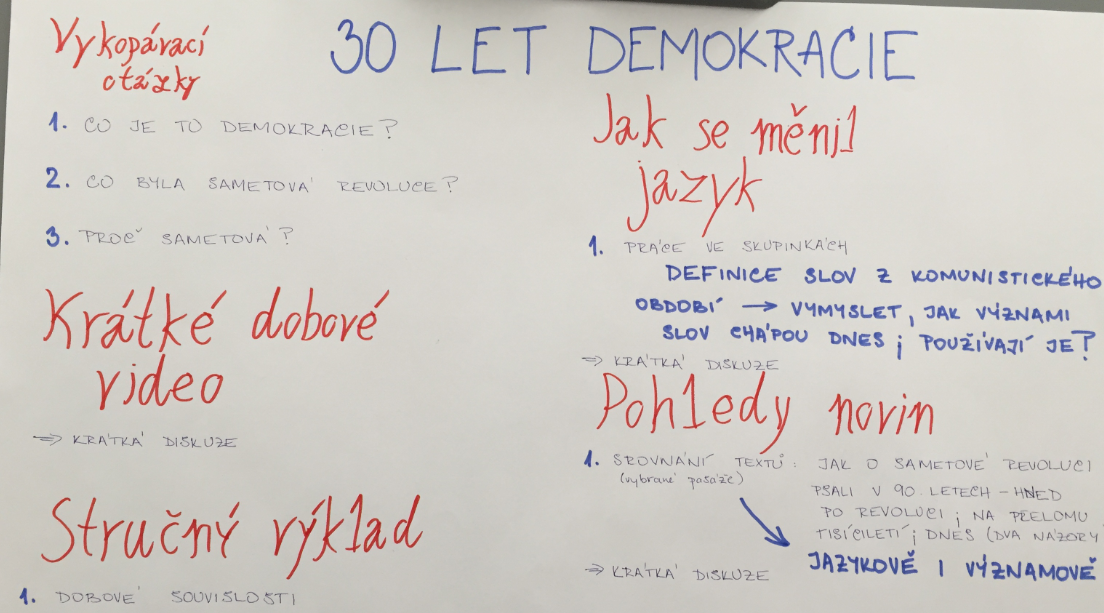 30 LET DEMOKRACIE
Vykopávací
otázky
1. CO JE TO DEMOKRACIE?
2. CO BYLA SAMETOVÁ REVOLUCE?
3. PROČ SAMETOVÁ?
Krátké dobové
video
⇒ KRÁTKÁ DISKUZE
Stručný výklad
1. DOBOVÉ SOUVISLOSTI
Jak se měnil
jazyk
1. PRÁCE VE SKUPINKÁCH
DEFINICE SLOV Z KOMUNISTICKÉHO
OBDOBÍ → VYMYSLET, JAK VÝZNAMI
SLOV CHÁPOU DNES; POUŽÍVAJÍ JE?
⇒ KRÁTKÁ DISKUZE
Pohledy novin
1. SROVNÁNÍ TEXTŮ: JAK O SAMETOVÉ REVOLUCI
(vybrané pasáže)
PSALI V 90. LETECH - HNED
PO REVOLUCI; NA PŘELOMU
TISÍCILETÍ; DNES (DVA NÁZORY
JAZYKOVĚ I VÝZNAMOVĚ
⇒ KRÁTKÁ DISKUZE